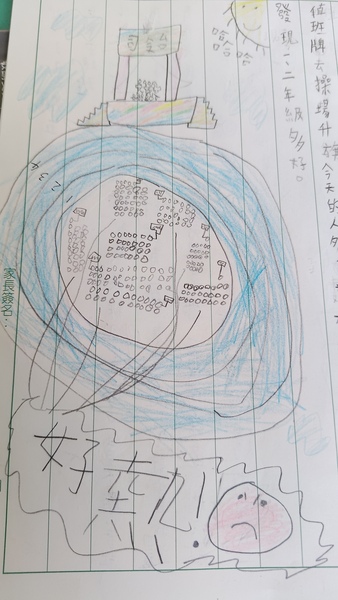 班牌去操場升旗今天的人
發現一、二年級多好。
哈哈哈
司令台
2 3 4
家長簽名：
好熱!